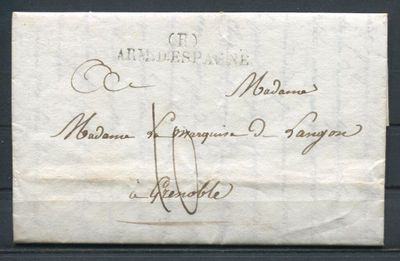 (F)
ARM. D'ESPAGNE
Madame
Madame La Marquise de Langon
10
à Grenoble